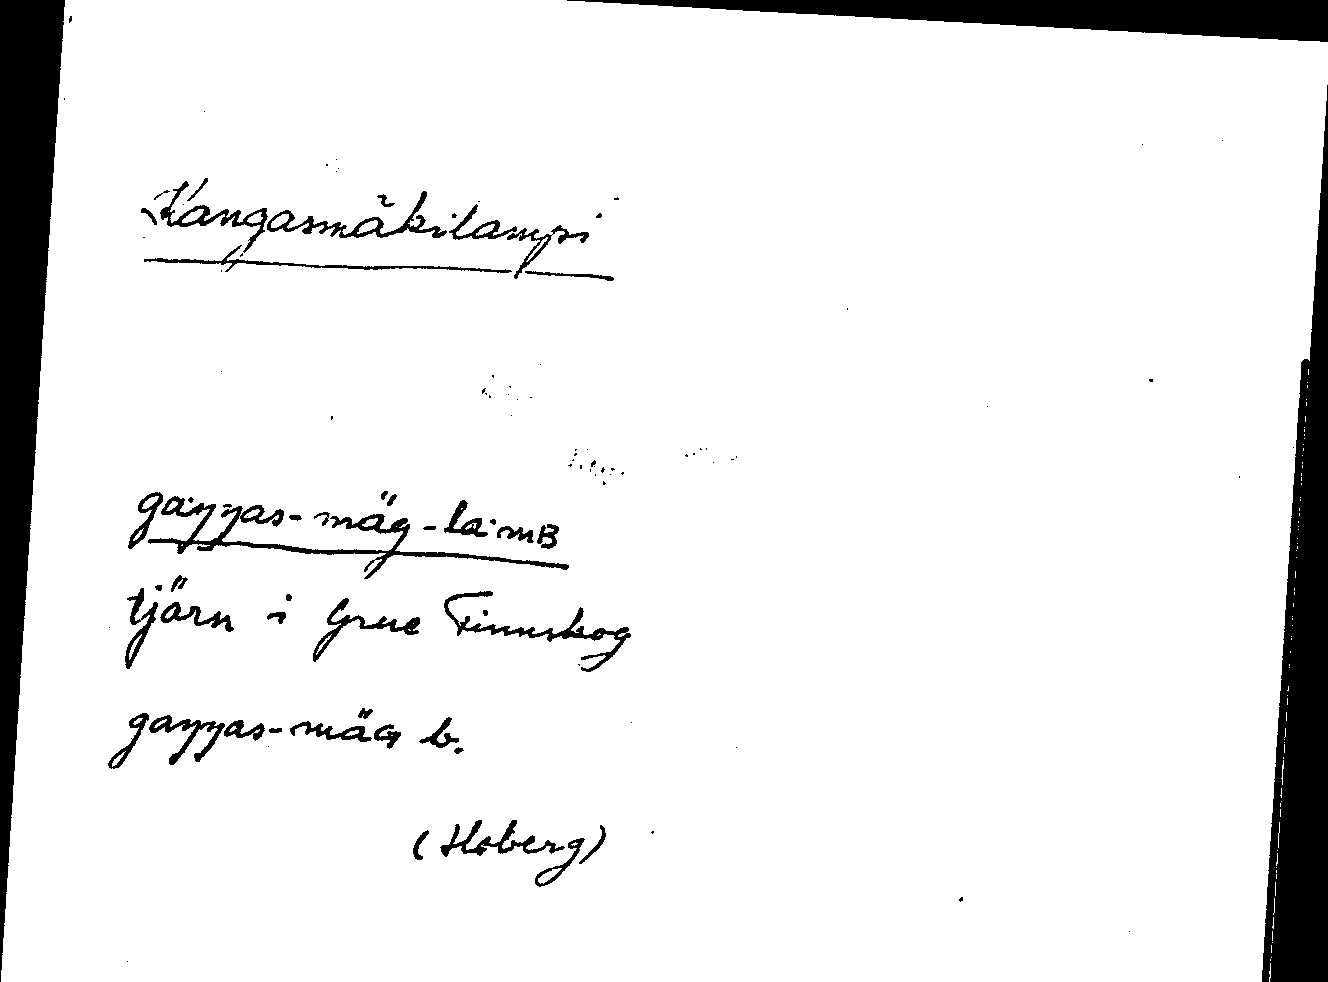 Kangasmäkilampi
gaŋŋas-mäg-la·mʙ
tjörn i Grue Finnskog
gaŋŋas-mäɢ b.
(Hoberg)